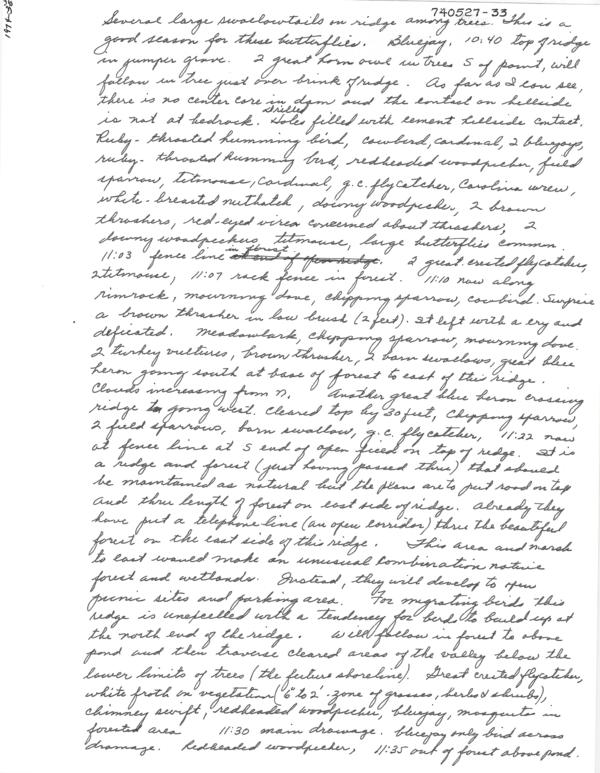 740527-33
Several large swallowtails on ridge among trees. This is a
good season for these butterflies. Bluejay, 10:40 top of ridge
in juniper grove. 2 great horn owl in trees S of point, will
follow in tree just over brink of ridge. As far as I can see,
there is no center core in dam and the contact on hillside
is not at bedrock. Drilled Holes filled with cement hillside contact.
Ruby-throated humming bird, cowbird, cardinal, 2 bluejays,
ruby-throated humming bird, redheaded woodpecker, field
sparrow, titmouse, cardinal, g.c. flycatcher, Carolina wren,
white-breasted nuthatch, downy woodpecker, 2 brown
thrashers, red-eyed vireo concerned about thrashers, 2
downy woodpeckers, titmouse, large butterflies common.
11:03 fence line in forest at end of open ridge. 2 great crested flycatchers,
2 titmouse, 11:07 rock fence in forest. 11:10 now along
rimrock, mourning dove, chipping sparrow, cowbird. Surprise
a brown thrasher in low brush (2 feet). It left with a cry and
deficated. Meadowlark, chipping sparrow, mourning dove.
2 turkey vultures, brown thrasher, 2 barn swallows, great blue
heron going south at base of forest to east of this ridge.
Clouds increasing from N. Another great blue heron crossing
ridge going west. Cleared top by 30 feet, Chipping sparrow,
2 field sparrows, barn swallow, g.c. flycatcher, 11:22 now
at fence line at S end of open field on top of ridge. It is
a ridge and forest (just having passed thru) that should
be maintained as natural but the plans are to put road on top
and thru length of forest on east side of ridge. Already they
have put a telephone line (an open corridor) thru the beautiful
forest on the east side of this ridge. This area and marsh
to east would make an unusual combination native
forest and wetlands. Instead, they will develop to open
picnic sites and parking area. For migrating birds this
ridge is unexcelled with a tendency for birds to build up at
the north end of the ridge. Will follow in forest to above
pond and then traverse cleared areas of the valley below the
lower limits of trees (the future shoreline). Great crested flycatcher,
white froth on vegetation (6" to 2' zone of grasses, herbs & shrubs),
chimney swift, redheaded woodpecker, bluejay, mosquito in
forested area 11:30 main drainage. bluejay only bird across
drainage. Redheaded woodpecker, 11:35 out of forest above pond.